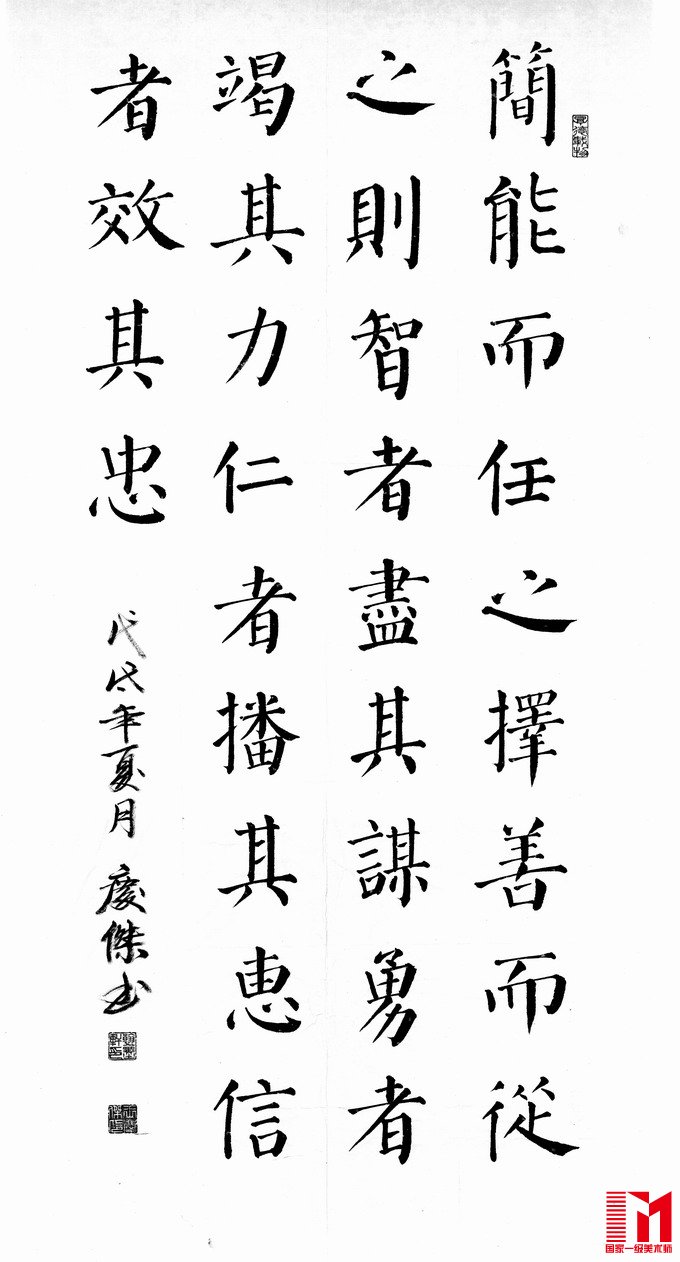 簡能而任之擇善而從
之則智者盡其謀勇者
竭其力仁者播其惠信
者效其忠
戊戌年夏月 慶傑书
国家一级美术师